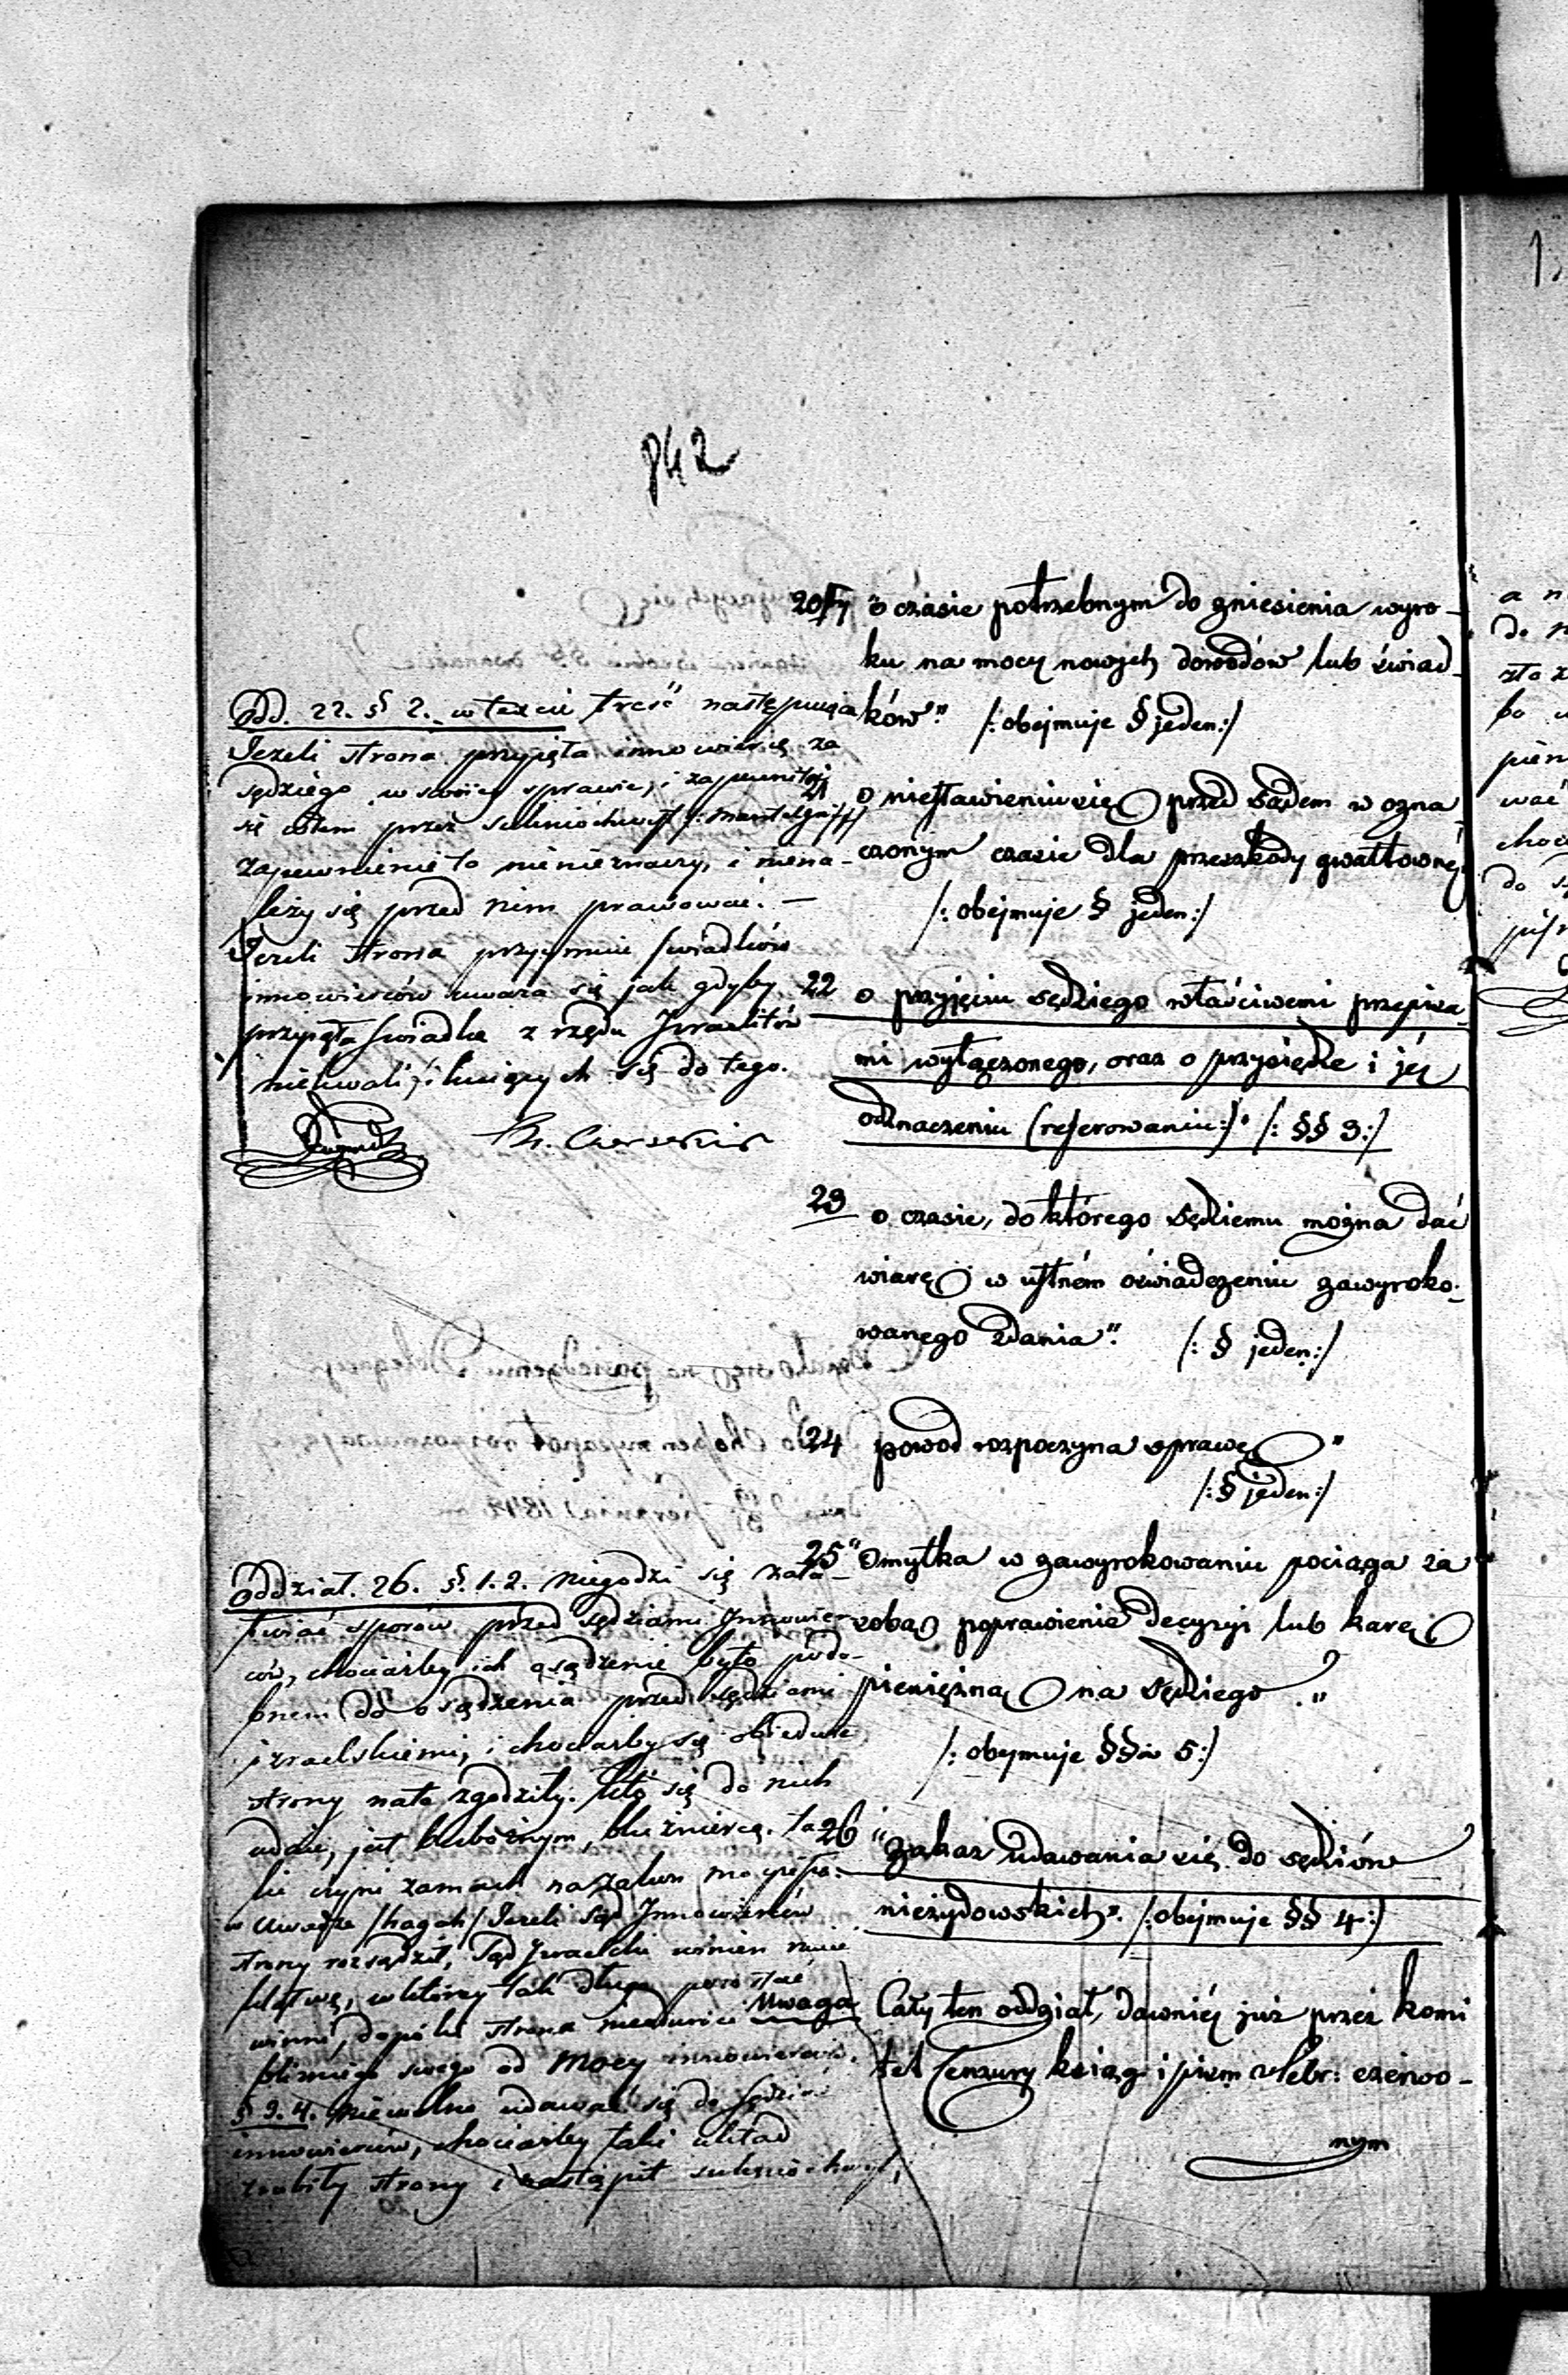 842
20 o czasie potrzebnym do zniesienia wyro-
ku na mocy nowych dowodów lub świad-
ków" /: obejmuje § jeden :/
21 o niestawieniu się przed sądem w ozna
czonym czasie dla przeszkody gwałtownéj
/: obejmuje § jeden :/
22 o przyjęciu sędziego właściwemi przepisa-
mi wyłączonego, oraz o przysiędze i jéj
odznaczeniu (referowaniu :/" /: §§ 3 :/
23 o czasie, do którego sędziemu można dać
wiarę w ustném oświadczeniu zawyroko-
wanego zdania" /: § jeden :/
24 powod rozpoczyna sprawę"
/: § jeden :/
25 "Omyłka w zawyrokowaniu pociąga za
sobą poprawienie decyzyi lub karę
pieniężną na sędziego."
/: obejmuje §§ów 5 :/
26 "Zakaz udawania się do sędziów
nieżydowskich". /: obejmuje §§ 4 :/
Uwaga Cały ten oddział, dawniéj już przez komi
tet Cenzury ksiąg i pism Hebr: czerwo-
nym
Odd. 22. § 2. w texcie treść następująca
Jeżeli strona przyjęła innowiercę za
sędziego w swoiey sprawie, i zapewniła
się ... przez
zapewnienie to nie nieznaczy, i niena-
leży się przed nim prawować. —
Jeżeli strona przyjmuie świadków
innowierców uważa się jak gdyby
przyjęła świadka z rzędu Izraelitów
niekwalifikuiących się do tego.
Oddział. 26. §. 1. 2. niegodzi się zała-
twiać sporów przed sędziami Innowier-
ców, chociażby ich osądzenie było podo-
bnem do osądzenia przed sędziami
izraelskiemi, i chociażby się obiedwie
strony nato zgodziły. Kto się do nich
udaie, jest bezbożnym, bluźniercą, ta
ki czyni zamach na zakon mojżesz.
w uwadze /hagah/ Jeżeli sąd Innowierców
strony rozsądził, Sąd Izraelski winien
klątwę, w którey tak długo pozostać
winni, dopóki strona nieuwolni
bliźniego swego od mocy innowierców.
§ 3. 4. Niewolno udawać się do sędziów
innowierców, chociażby taki układ
zrobiły strony i nastąpił